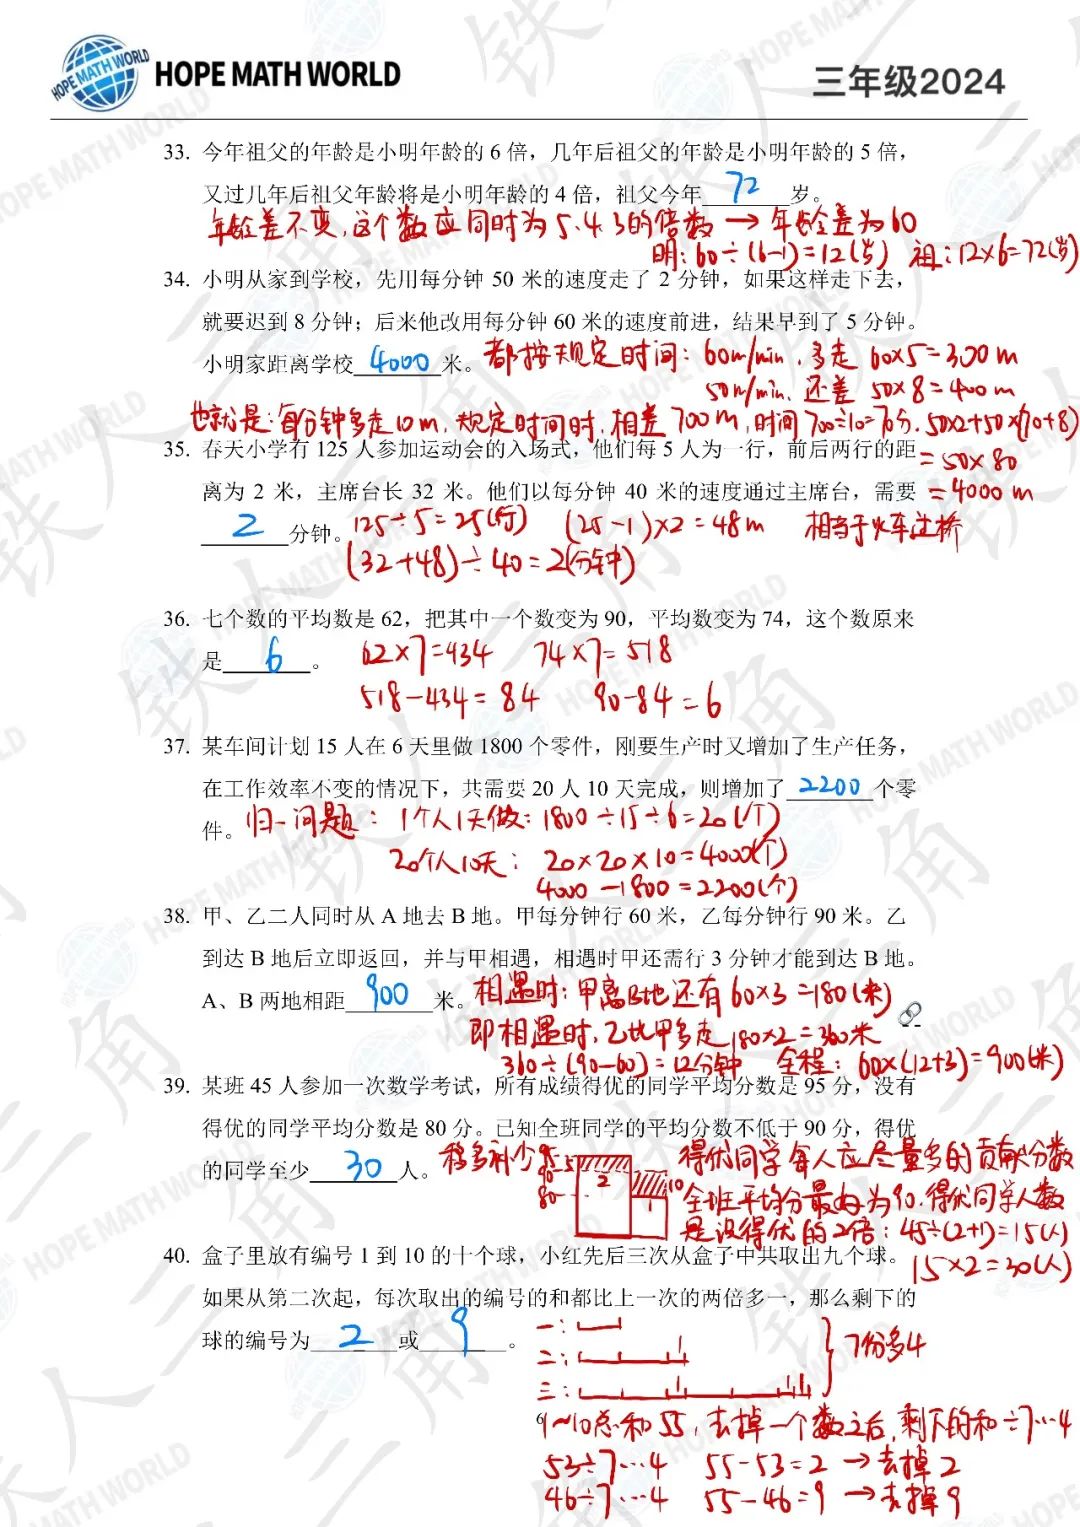 HOPE MATH WORLD
三年级2024
33. 今年祖父的年龄是小明年龄的 6 倍，几年后祖父的年龄是小明年龄的 5 倍，
又过几年后祖父年龄将是小明年龄的 4 倍，祖父今年 72 岁。
年龄差不变，这个数应同时为5、4、3的倍数 → 年龄差为60
明：60÷(6-1)=12(岁) 祖：12×6=72(岁)
34. 小明从家到学校，先用每分钟 50 米的速度走了 2 分钟，如果这样走下去，
就要迟到 8 分钟；后来他改用每分钟 60 米的速度前进，结果早到了 5 分钟。
小明家距离学校 4000 米。 都按规定时间：60m/min，多走 60×5=300m
50m/min，还差 50×8=400m
也就是：每分钟多走10m，规定时间时，相差700m，时间700÷10=70分，50×2+50×(70+8)
35. 春天小学有 125 人参加运动会的入场式，他们每 5 人为一行，前后两行的距
=50×80
离为 2 米，主席台长 32 米。他们以每分钟 40 米的速度通过主席台，需要
=4000m
2 分钟。 125÷5=25(行) (25-1)×2=48m 相当于火车过桥
(32+48)÷40=2(分钟)
36. 七个数的平均数是 62，把其中一个数变为 90，平均数变为 74，这个数原来
是 6 。 62×7=434 74×7=518
518-434=84 90-84=6
37. 某车间计划 15 人在 6 天里做 1800 个零件，刚要生产时又增加了生产任务，
在工作效率不变的情况下，共需要 20 人 10 天完成，则增加了 2200 个零
件。 归一问题：1个人1天做：1800÷15÷6=20(个)
20个人10天：20×20×10=4000(个)
4000-1800=2200(个)
38. 甲、乙二人同时从 A 地去 B 地。甲每分钟行 60 米，乙每分钟行 90 米。乙
到达 B 地后立即返回，并与甲相遇，相遇时甲还需行 3 分钟才能到达 B 地。
A、B 两地相距 900 米。 相遇时：甲离B地还有60×3=180(米)
即相遇时，乙比甲多走180×2=360米
360÷(90-60)=12分钟 全程：60×(12+3)=900(米)
39. 某班 45 人参加一次数学考试，所有成绩得优的同学平均分数是 95 分，没有
得优的同学平均分数是 80 分。已知全班同学的平均分数不低于 90 分，得优
的同学至少 30 人。 移多补少 95 5 2 90 80 10 1 得优同学每人应尽量多的贡献分数
全班平均分最好为90，得优同学人数
是没得优的2倍：45÷(2+1)=15(人)
15×2=30(人)
40. 盒子里放有编号 1 到 10 的十个球，小红先后三次从盒子中共取出九个球。
如果从第二次起，每次取出的编号的和都比上一次的两倍多一，那么剩下的
球的编号为 2 或 9 。
一：
二： 1
三： 1 1 1
7份多4
6
1~10总和55，去掉一个数之后，剩下的和÷7…4
53÷7…4 55-53=2 → 去掉2
46÷7…4 55-46=9 → 去掉9